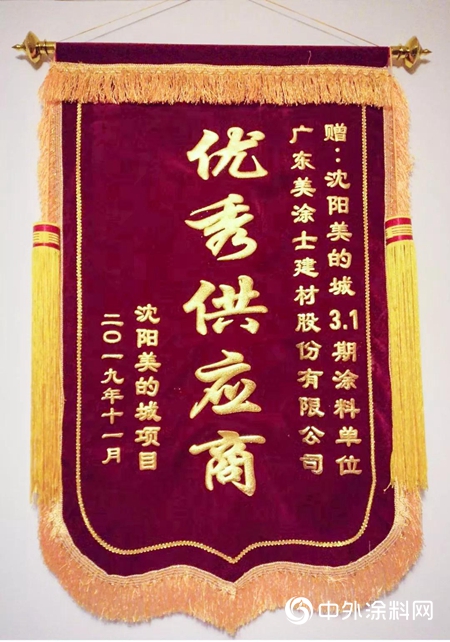 赠：沈阳美的城3.1期涂料单位
广东美涂士建材股份有限公司
优秀供应商
沈阳美的城项目
二〇一九年十一月
中外涂料网